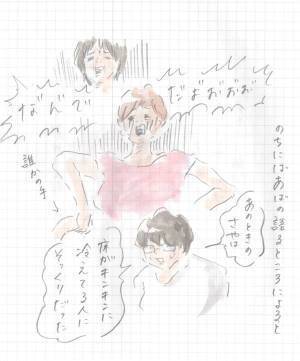 のちにばあばの語るところによると
なんで
だよおおお
誰かの手
あのときの
さやは
床がキンキンに
冷えてる人に
そっくりだった